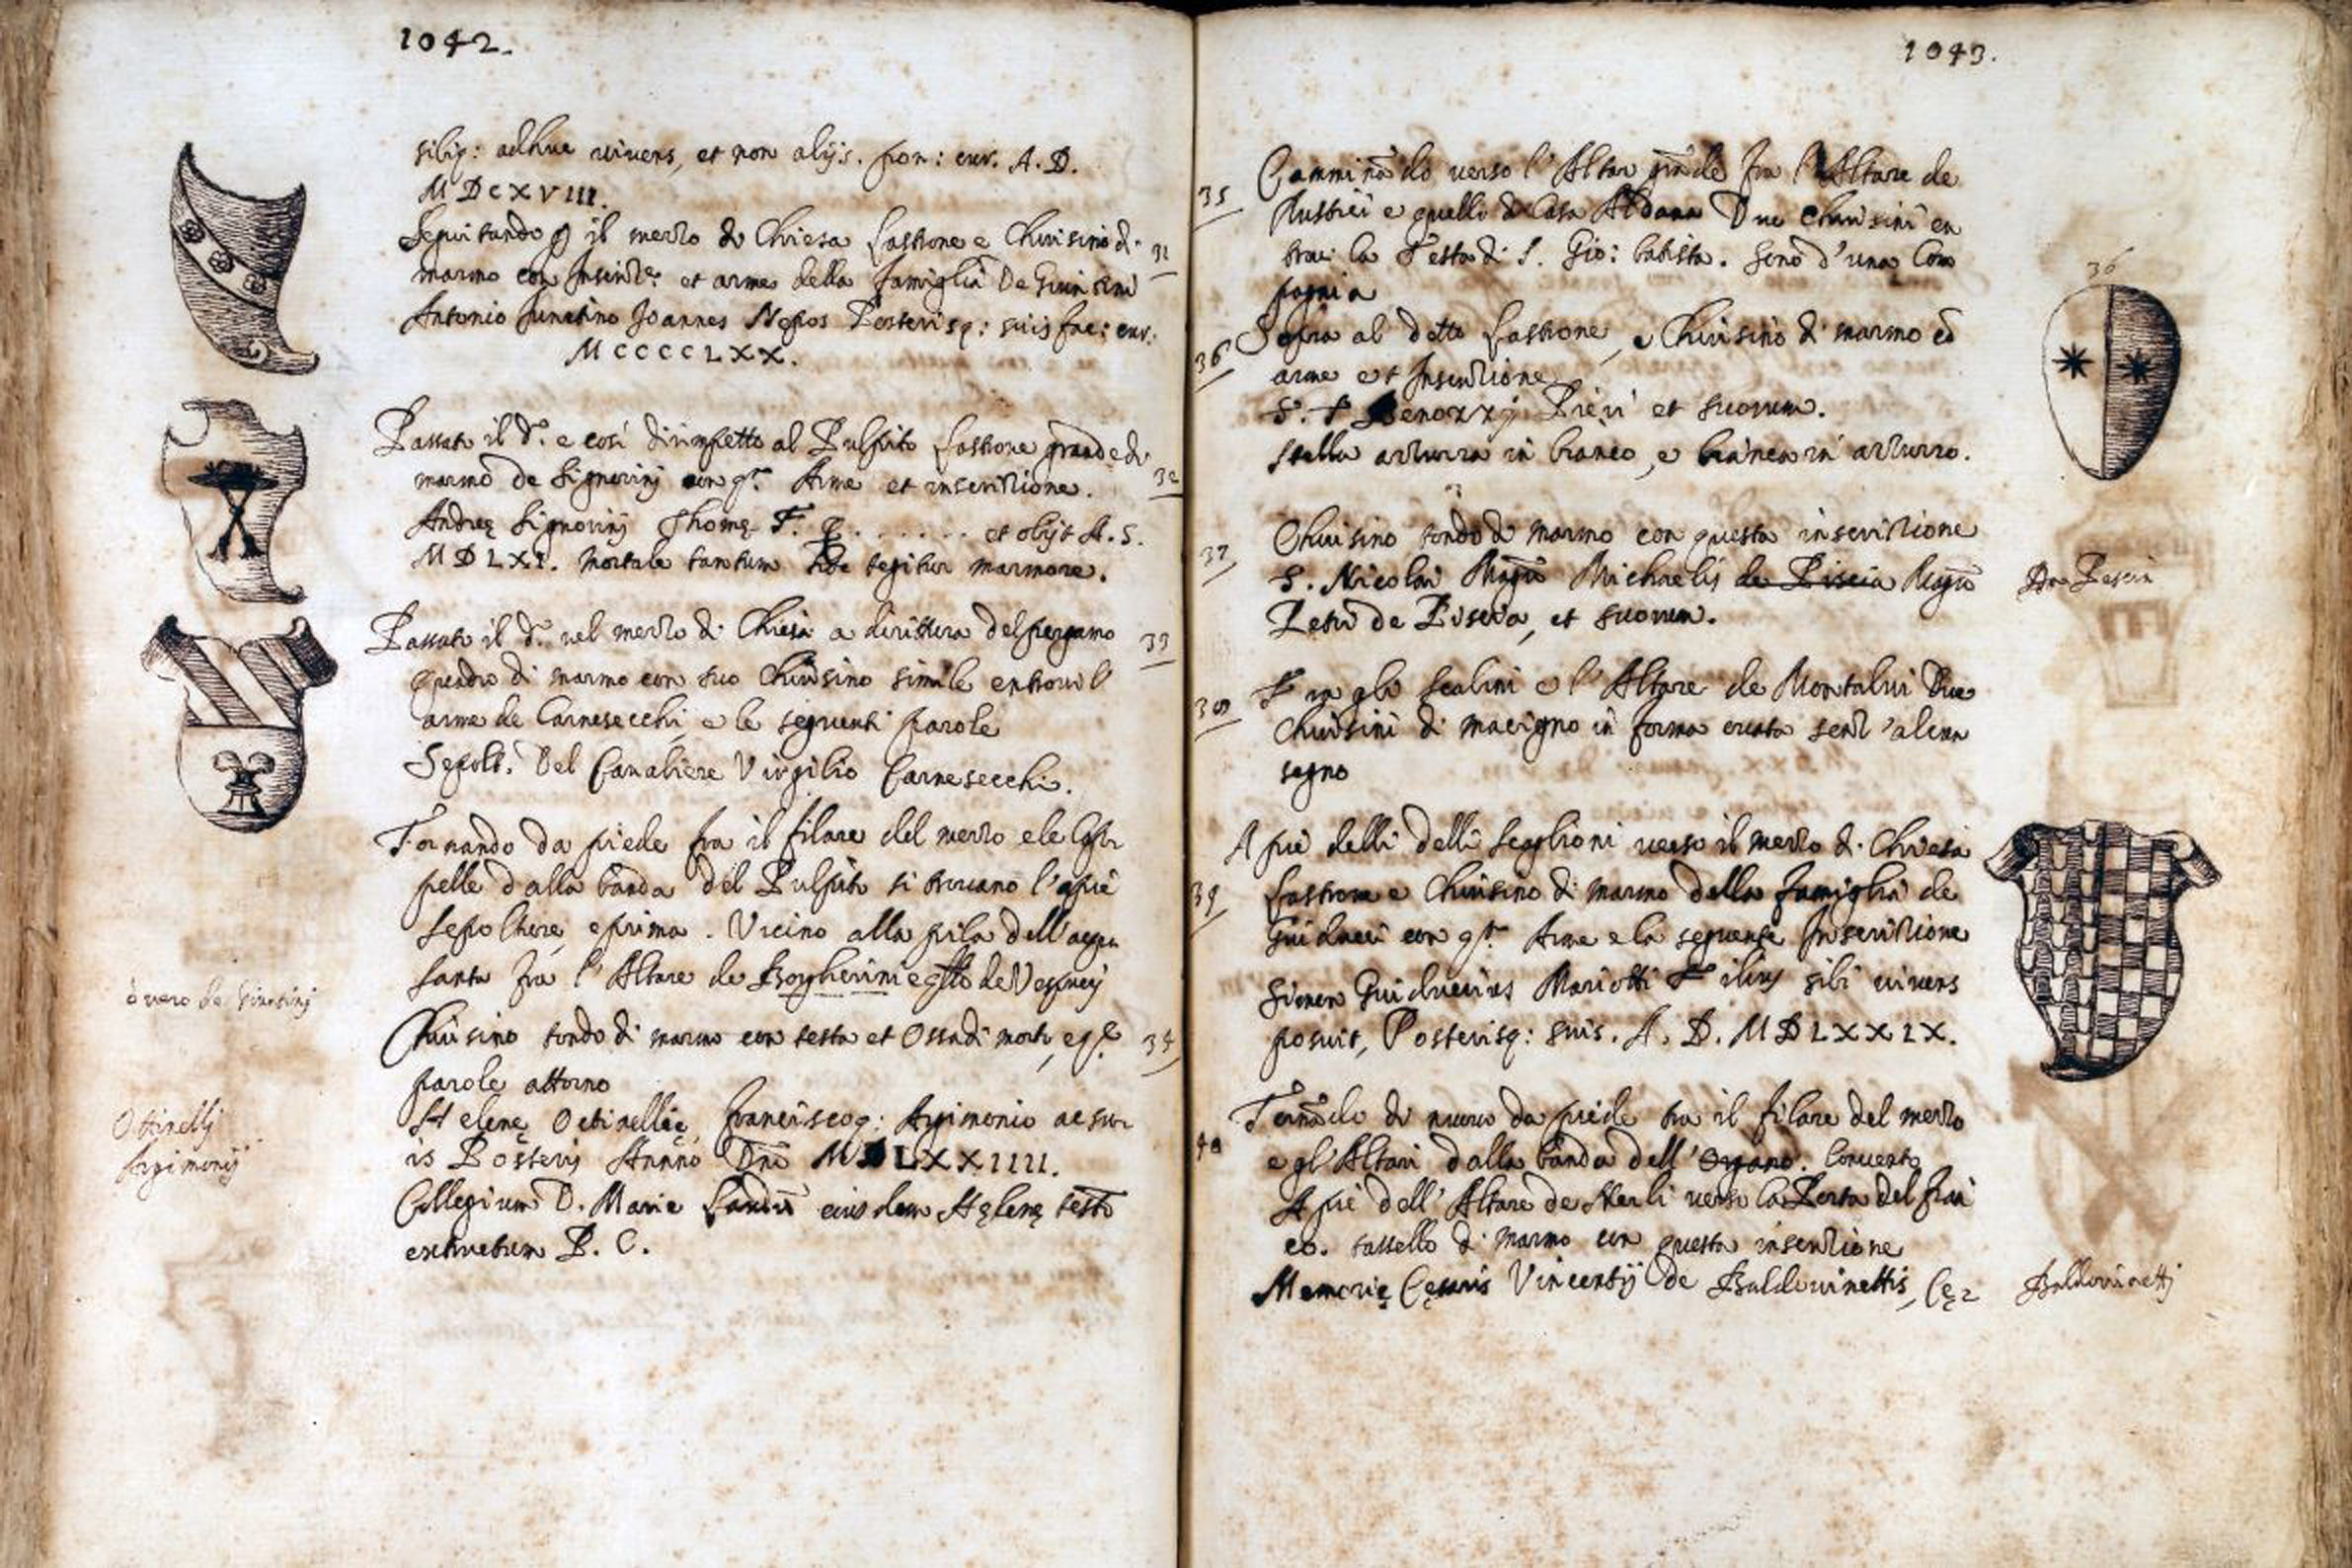 1042.
sibiq: adhuc vivens, et non alijs. pon: cur. A. D.
MDCXVIII.
Seguitando p il mezzo di Chiesa lastrone e Chiusino di 31
marmo con Inscrit.e et arme della famiglia De Giuntini
Antonio Junctino Joannes Nepos Posterisq: suis fac: cur.
MCCCCLXX.
Passato il d.o e così dirimpetto al Pulpito lastrone grande di
marmo de Signorinj con q.ta Arme et inscrizione. 32
Andreę Signorinj Thomę F. . . . . . . . et obijt A. S.
MDLXI. mortale tantum hoc tegitur marmore.
Passato il d.o nel mezzo di Chiesa a dirittura del pergamo 33
quadro di marmo con suo Chiusino simile entrovi l'
arme de Carnesecchi, e le seguenti parole
Sepolt. Del Cavaliere Virgilio Carnesecchi.
Tornando da piede fra il filare del mezzo e le Cap
pelle dalla banda del Pulpito si trovano l'apiè
sepolture, e prima. Vicino alla pila dell'acqua
santa fra l'Altare de Borgherini e q.llo de Vespucij
ò vero de Giuntinj
Chiusino tondo di marmo con testa et Ossa di morte, e q.e 34
parole attorno
Helenę Octinellię, Franciscoq: Arpimonio ac su
Ottinellj
Arpimonij
is Posterij Annno Dnī MDLXXIIII.
Collegium D. Marie Laudū eiusdem Hęlenę testo
extructum P. C.
1043.
Camminādo verso l'Altar grāde fra l'Altare de
35
Rustici e quelli di Casa Aldana Due Chiusini en
trovi la Testa di S. Gio: batista. sono d'una Com
pagnia
36
36 Sopra al detto lastrone, e Chiusino di marmo cō
arme et Inscrizione
S. Benozzj Pieri et suorum.
stella azzurra in bianco, e bianca in azzurro.
Chiusino tondo di marmo con questa inscrizione
37
S. Nicolai Magrī Michaelis de Piscia Magrī
Da Pescia
Petri de Piscia, et suorum.
38 Fra gli scalini e l'Altare de Montalvi Due
Chiusini di macigno in forma ovata senz'alcun
segno
A piè delli delli scaglioni verso il mezzo di Chiesa
39 lastrone e Chiusino di marmo della famiglia de
Guiducci con q.ta Arme e la seguente Inscrizione
Simon Guiduccius Mariotti Filius sibi vivens
posuit, Posterisq: suis. A. D. MDLXXIX.
Tornādo di nuovo da piede tra il filare del mezzo
40 e gl'Altari dalla banda dell'Organo. Convento
A piè dell'Altare de Nerli verso la Porta del fian
co. tassello di marmo con questa inscrizione
Memorię Cęsaris Vincentij de Baldovinettis, Cę
Baldovinettj